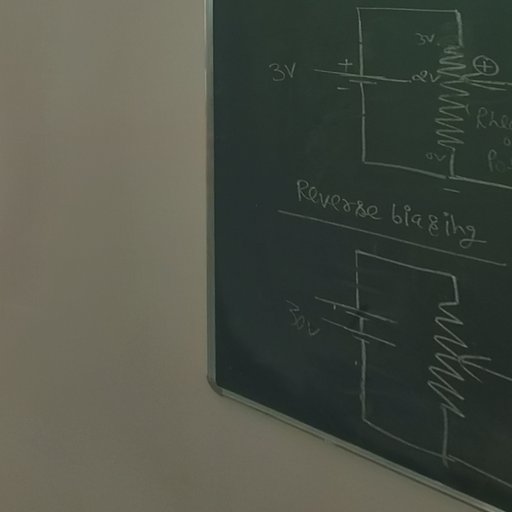 3V.
3V
+
2V
+
-
0V
-
Reverse biasing
30V